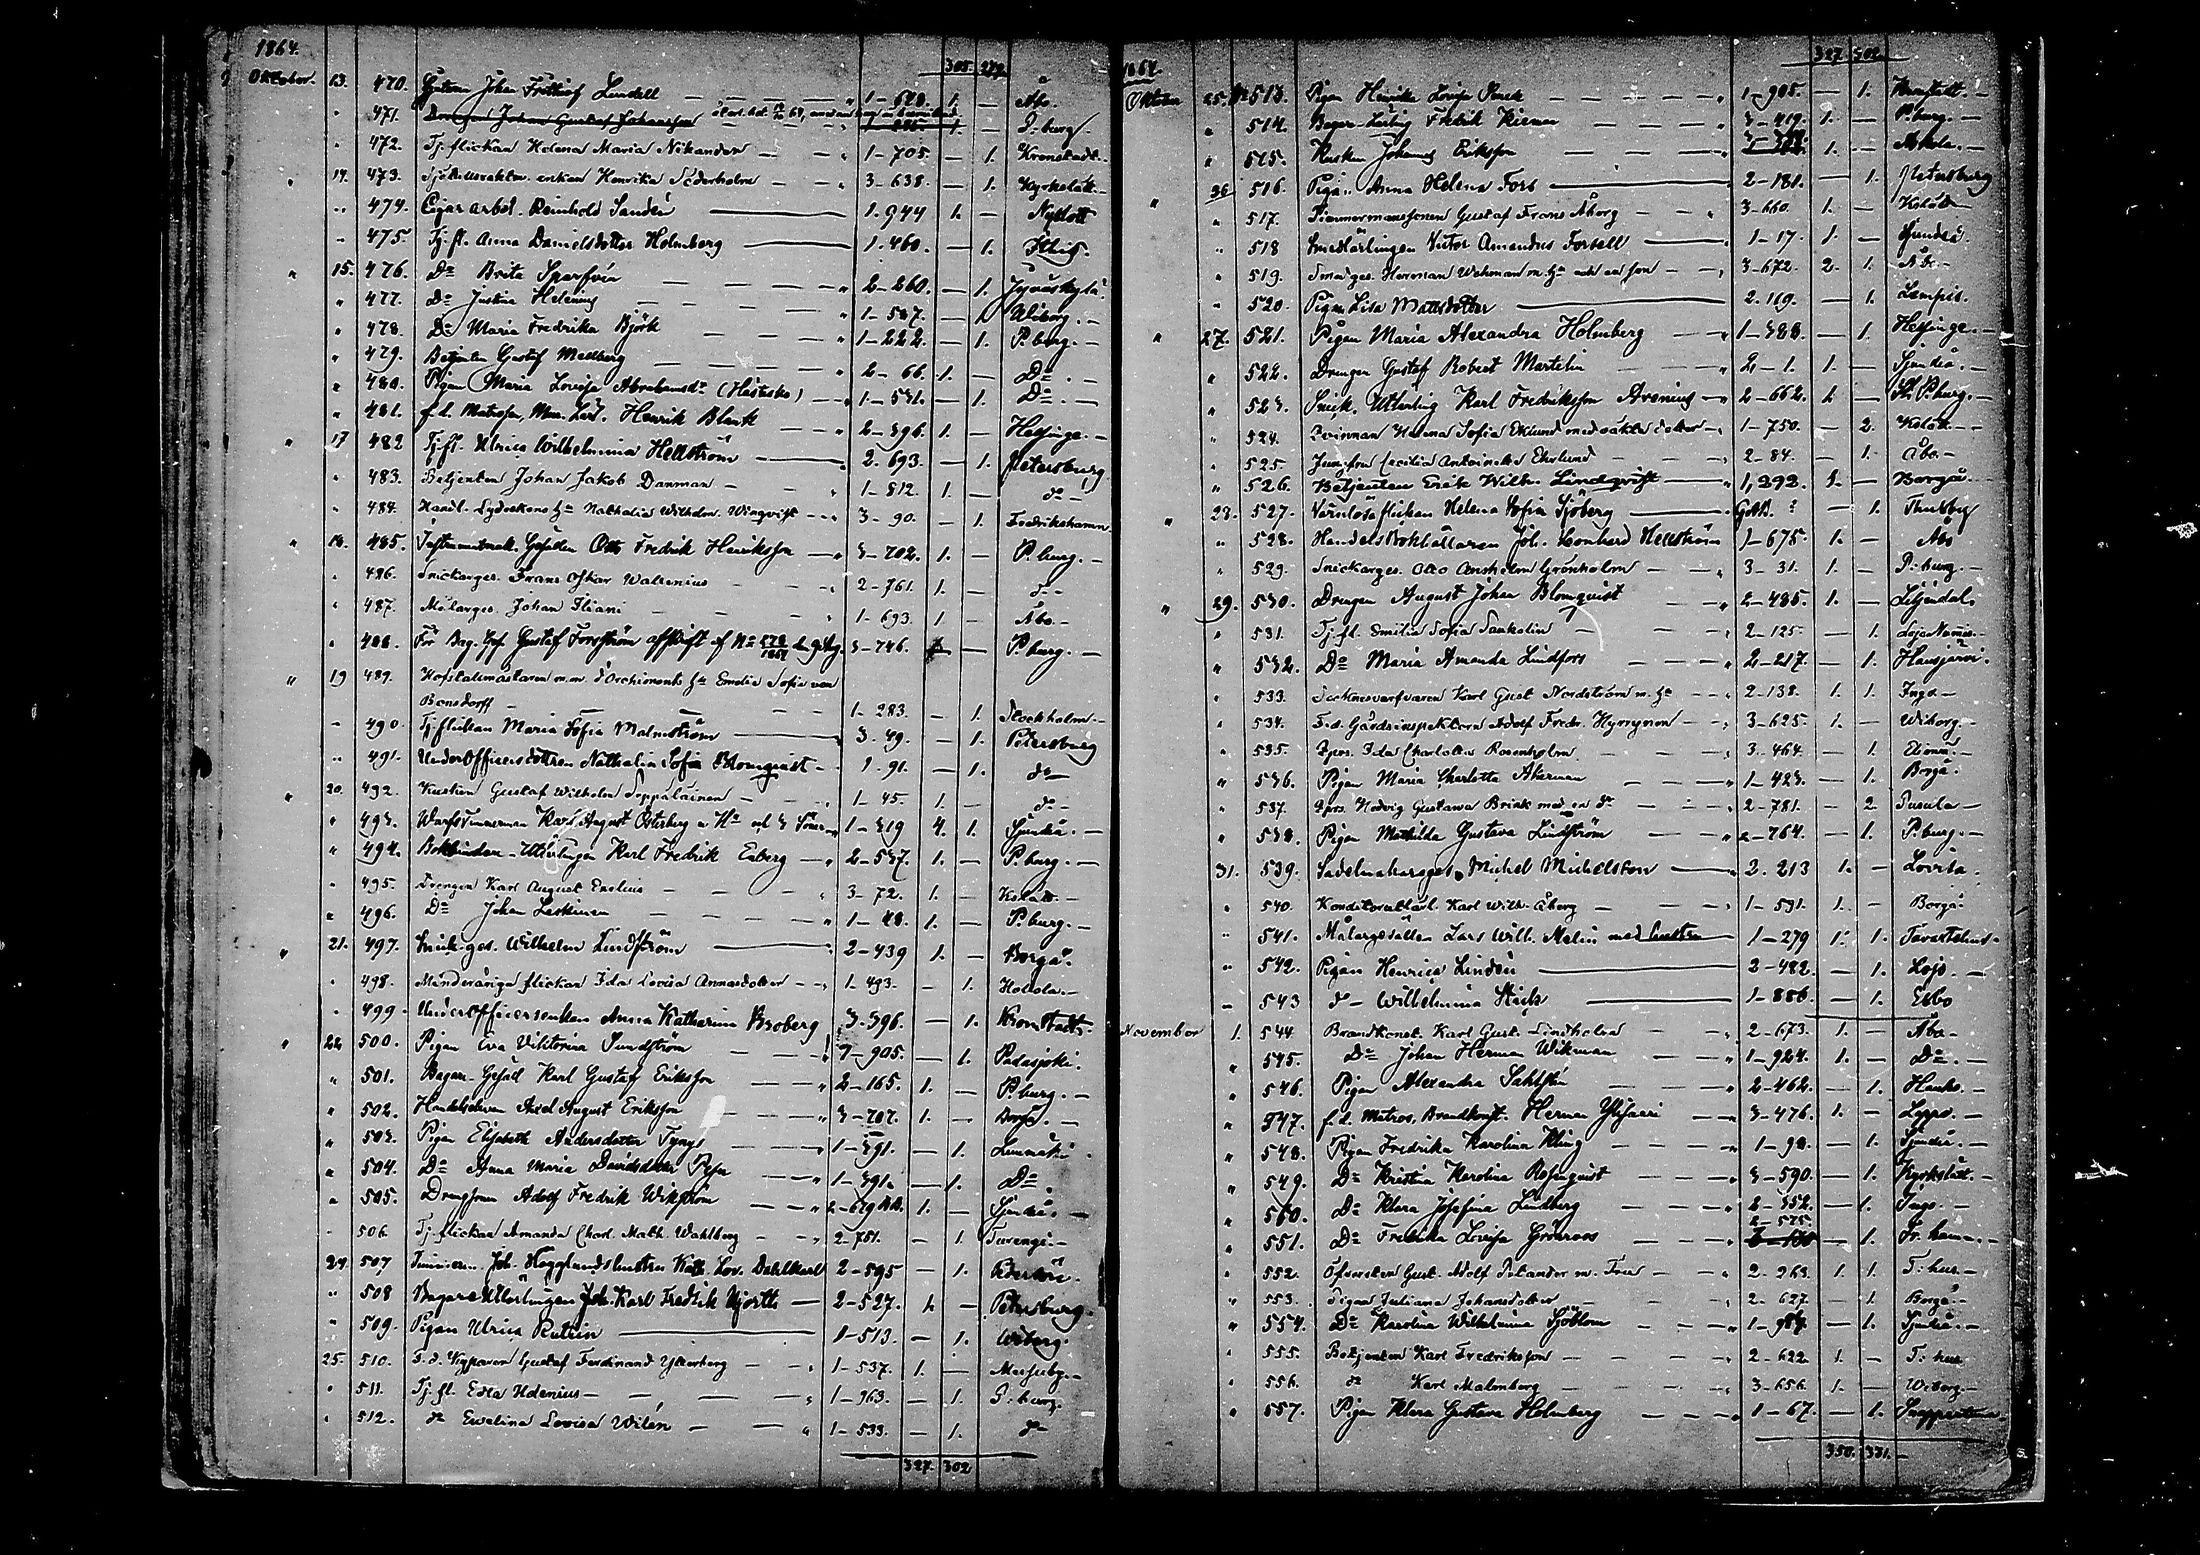 1864.
305. 277.
Oktober. 13. 470. Johan Frithiof Lundell — 1–628. 1. — Åbo.
" 471. Drengen Johan Gustaf Johansson 1. — P.burg.
" 472. Tj. flickan Helena Maria Nikander — 1–705. — 1. Kronstadt.
" 14. 473. enkan Henrika Söderholm — 3–638. — 1. Kyrkslätt.
" 474. Cigararbet. Reinhold Sandén — 1.944 1. — Nyslott
" 475. Tj. fl. Anna Danielsdotter Holmberg — 1.460. — 1.
" 15. 476. Do Brita Sparfvén — 2–260. — 1. Jyväskylä.
" 477. Do Justina Helenius — 1–587. — 1. Wiborg. —
" 478. Do Maria Fredrika Björk — 1–222. — 1. P.burg. —
" 479. Betjenten Gustaf Medberg — 2–66. 1. — Do. —
" 480. Pigan Maria Lovisa Abrahamsdr — 1–531. — 1. Do. —
" 481. f.d. Matrosen, Henrik Blank — 2–396. 1. — Helsinge. —
" 17 482 Tj. fl. Ulrica Wilhelmina Hellström — 2.693. — 1. Petersburg
" 483. Betjenten Johan Jakob Danman — 1–812. 1. — do —
" 484. Handl. Lydeckens Hu Nathalia Wilhelm. Wingvist — 3–90. — 1. Fredrikshamn
" 18. 485. Instrumentmak. Gesällen Otto Fredrik Henriksson — 3–702. 1. — P.burg. —
" 486. Snickarges. Frans Oskar Walsenius — 2–761. 1. — d–
" 487. Målarges. Johan Iliani — 1–693. 1 — Åbo. —
" 488. För Bag. Ges. Gustaf Forsström afskrift af No 578/1864 3–746. — P.burg. —
" 19 489. Hofstallmästaren m.m. d'Orchimonts Hu Emelie Sofia von
Bonsdorff — 1–283. — 1. Stockholm. —
" 490. Tj. flickan Maria Sofia Malmström — 3.49. — 1. Petersburg
" 491. Underofficersdottren Nathalia Sofia Blomqvist — 1.91. — 1. do
" 20. 492. Kusken Gustaf Wilhelm Seppäläinen — 1–45. 1. — d–
" 493. Warfstimmerman Karl August Österberg m. Hu och 3 Söner 1–319 4. 1. Sjundeå. —
" 494. Bokbindare-Utlärlingen Karl Fredrik Enberg — 2–537. 1. — P.burg. —
" 495. Drengen Karl August Enelius — 3–72. 1. — Kslätt. —
" 496. Do Johan Leskinen — 1–48. 1. — P.burg. —
" 21. 497. Snick. ges. Wilhelm Lindström — 2–439 1. — Borgå.
" 498. Minderåriga flickan Ida Lovisa Annasdotter — 1–493. — 1. Hollola. —
" 499. Underofficersenkan Anna Katharina Broberg 3–396. — 1. Kronstadt. —
" 22 500. Pigan Eva Viktorina Sundström — 3–905. — 1. Padasjoki.
" 501. Bagare-Gesäll Karl Gustaf Eriksson — 2–165. 1. — P.burg. —
" 502. Handelseleven Axel August Eriksson — 3–707. 1. — Borgå. —
" 503. Pigan Elisabeth Andersdotter Tynys — 1–391. — 1.
" 504. Do Anna Maria Davidsdotter — 1–391. — 1. Do
" 505. Drengsonen Adolf Fredrik Wikström — 2–619 1. — Sjundeå. —
" 506. Tj. flickan Amanda Charl. Math. Wahlberg — 2–751. — 1. Turengi. —
24. 507 Timmerm. Joh. Hägglunds hustru Kath. Lov. Dahlkarl 2–595 — 1. Pedersöre.
" 508 Bagare Utlärlingen Joh. Karl Fredrik Hjorth — 2–527. 1. — Petersburg.
" 509. Pigan Ulrica Rutsin — 1–513. — 1. Wiborg.
25. 510. F. d. Kyparen Gustaf Ferdinand Ytterberg — 1–537. 1. —
" 511. Tj. fl. Edla Idenius — 1–963. — 1. P.burg.
" 512. do Ewelina Lovisa Wilén — 1–533. — 1. d–
327. 302
327. 302.
1864.
Oktober 25. No 513. Pigan Henrika Lovisa — 1–905. — 1. Kronstadt. —
" 514. Bagare-Lärling Fredrik — 3–419. 1. — P.burg. —
" 515. Kusken Johannes Eriksson — 1. — Askola. —
" 26 516. Pigan Anna Helena Fors — 2–181. — 1. Petersburg
" 517. Timmermanssonen Gustaf Frans Åberg — 3–660. 1. — Kslätt —
" 518 Smedlärlingen Victor Amandus Forsell — 1–17. 1. — Sjundeå.
" 519. Smedges. Herrman Wehman m. Hu och en son — 3–672. 2. 1. Åbo. —
" 520. Pigan Lisa Mattsdotter — 2.119. — 1. Lampis.
" 27. 521. Pigan Maria Alexandra Holmberg — 1–388. — 1. Helsinge. —
" 522. Drengen Gustaf Robert Martelin — 2–1. 1. — Sjundeå. —
" 523. Snick. Utlärling Karl Fredriksson Arenius — 2–662. 1. — St. P.burg. —
" 524. Qvinnan Helena Sofia Eklund med oäkta dotter — 1–750. — 2. Kslätt. —
" 525. Jungfrun Cecilia Antoinette Ekelund — 2–84. — 1. Åbo. —
" 526. Betjenten Erik Wilh. Lindqvist — 1,292. 1. — Borgå. —
" 28. 527. Värnlösa flickan Helena Sofia Sjöberg — ? — 1. Thusby
" 528. Handelsbokhållaren Joh. Leonhard Hellström 1–675. 1. — Åbo
" 529. Snickarges. Otto Anshelm Grönholm — 3–31. 1. — P.burg. —
" 29. 530. Drengen August Johan Blomquist — 2–485. 1. — Liljendal.
" 531. Tj. fl. Emilia Sofia Tankolin — 2–125. — 1. Lojo Nummi. —
" 532. Do Maria Amanda Lindfors — 2–217. — 1. Hausjärvi.
" 533. Karl Gust. Nordström m. Hu — 2–138. 1. 1. Ingo —
" 534. F.d. Gårdsinspektorn Adolf Fredr. Hyrrynen — 3–625. 1. — Wiborg. —
" 535. Ida Charlotta Rosenholm — 3–464. — 1. Elimä. —
" 536. Pigan Maria Charlotta Åkerman — 1–423. — 1. Borgå.
" 537. Hedvig Gustawa Brink med en dr — 2–781. — 2. Pusula —
" 538. Pigan Mathilda Gustava Lindström — 2–764. — 1. P.burg. —
31. 539. Sadelmakareges. Michel Michelsson — 2.213 1. — Lovisa.
" 540. Konditorlärl. Karl Wilh. Åberg — 1–531. 1. — Borgå.
" 541. Målargesällen Lars Wilh. Malin med hustru 1–279 1. 1. Tavastehus. —
" 542. Pigan Henrica Lindén — 2–482. — 1. Lojo. —
– 543 d– Wilhelmina — 1–886. — 1. Esbo
November 1. 544 Brandkonst. Karl Gust. Lindholm — 2–673. 1. — Åbo —
" 545. Do Johan Herman Wikman — 1–924. 1. — Do. —
" 546. Pigan Alexandra Sahlstén — 2–462. — 1. Hauho. —
" 547. f.d. Matros, Brandkonst. Herman — 3–476. 1. — Loppo. —
" 548. Pigan Fredrika Karolina Kling — 1–98. — 1. Sjundeå. —
" 549. Do Kristina Karolina Rosenquist — 3–590. — 1. Kyrkslätt. —
" 550. Do Klara Josefina Lindberg — 2–352. — 1. Ingo. —
2–575.
" 551. Do Fredrika Lovisa Grönroos — 1. Fr. hamn. —
" 552. Öfversten Gust. Adolf Pelander m. Fru — 2–263. 1. 1. T:hus. —
" 553. Pigan Juliana Johansdotter — 2–627. — 1. Borgå —
" 554. Do Karolina Wilhelmina Sjöblom — 1–987. — 1. Sjundeå. —
" 555. Betjenten Karl Fredriksson — 2–622. 1. — T:hus
" 556. do Karl Malmberg — 3–656. 1. — Wiborg. —
" 557. Pigan Klara Gustava Holmberg — 1–67. — 1. Snappertuna.
350. 331. —